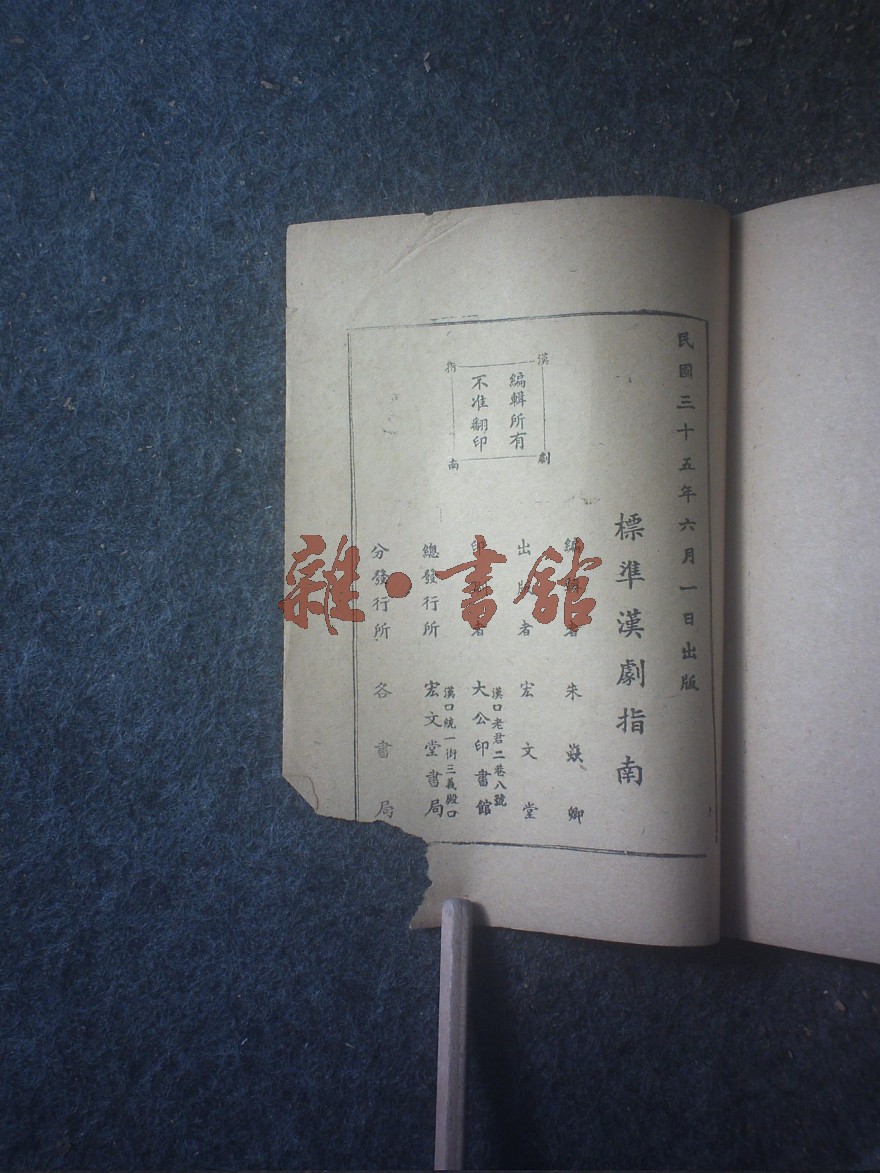 民國三十五年六月一日出版
標準漢劇指南
漢劇指南
編輯所有
不准翻印
編輯者 朱 卿
出版者 宏文堂
漢口老君二巷八號
印刷者 大公印書館
漢口統一街三義殿口
總發行所 宏文堂書局
分發行所 各書局
雜·書館